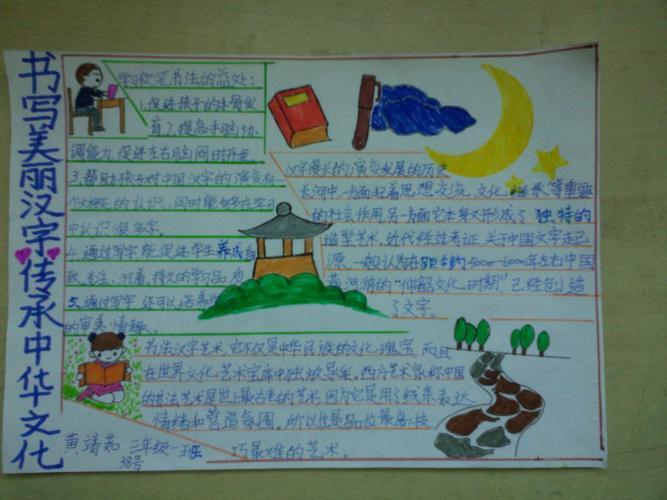 书写美丽汉字传承中华文化
学习软笔书法的益处:
1.促进孩子的
育2.提高手脑协
调能力,促进左右脑同时开发
3.帮助孩子对中国汉字的演变有一
个的认识,同时能够多在学习
中认识很多字。
4.通过写字能促进学生养成细
致、专注、沉着、持久的学习品质
5.通过写字还可以培养
的审美情趣。
汉字漫长的演变发展的历史
长河中,一方面起着思想交流、文化继承等重要
的社会作用,另一方面它本身又形成了独特的
造型艺术,近代经过考证,关于中国文字起
源,一般认为在距今约5000-6000年左右中国
黄河游的"仰韶文化时期"已经创造
了文字。
书法汉字艺术,它不仅是中华民族的文化瑰宝,而且
在世界文化艺术宝库中独放异采。西方艺术家称中国
的书法艺术是世上最古老的艺术,因为它是用了线条表达
情绪和营造氛围。所以也是品位最高,技
巧最难的艺术。
黄靖茹 二年级一班
38号